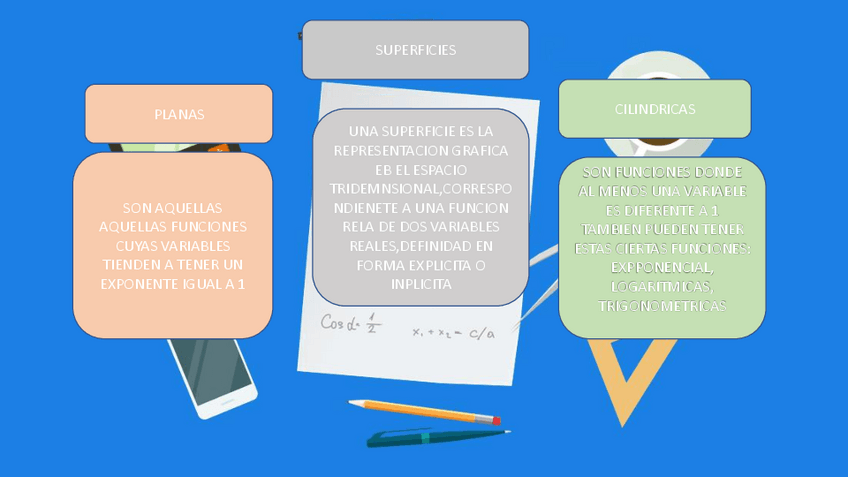 SUPERFICIES
PLANAS
SON AQUELLAS
AQUELLAS FUNCIONES
CUYAS VARIABLES
TIENDEN A TENER UN
EXPONENTE IGUAL A 1
UNA SUPERFICIE ES LA
REPRESENTACION GRAFICA
EB EL ESPACIO
TRIDEMNSIONAL,CORRESPO
NDIENETE A UNA FUNCION
RELA DE DOS VARIABLES
REALES,DEFINIDAD EN
FORMA EXPLICITA O
INPLICITA
CILINDRICAS
SON FUNCIONES DONDE
AL MENOS UNA VARIABLE
ES DIFERENTE A 1
TAMBIEN PUEDEN TENER
ESTAS CIERTAS FUNCIONES:
EXPPONENCIAL,
LOGARITMICAS,
TRIGONOMETRICAS
Cos d= 1/2
x₁ + x₂ = c/a